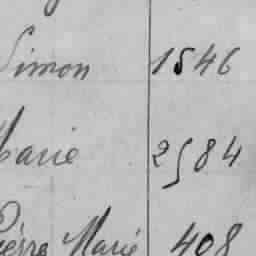 Simon 1546
Marie 2584
Pierre Marie 408